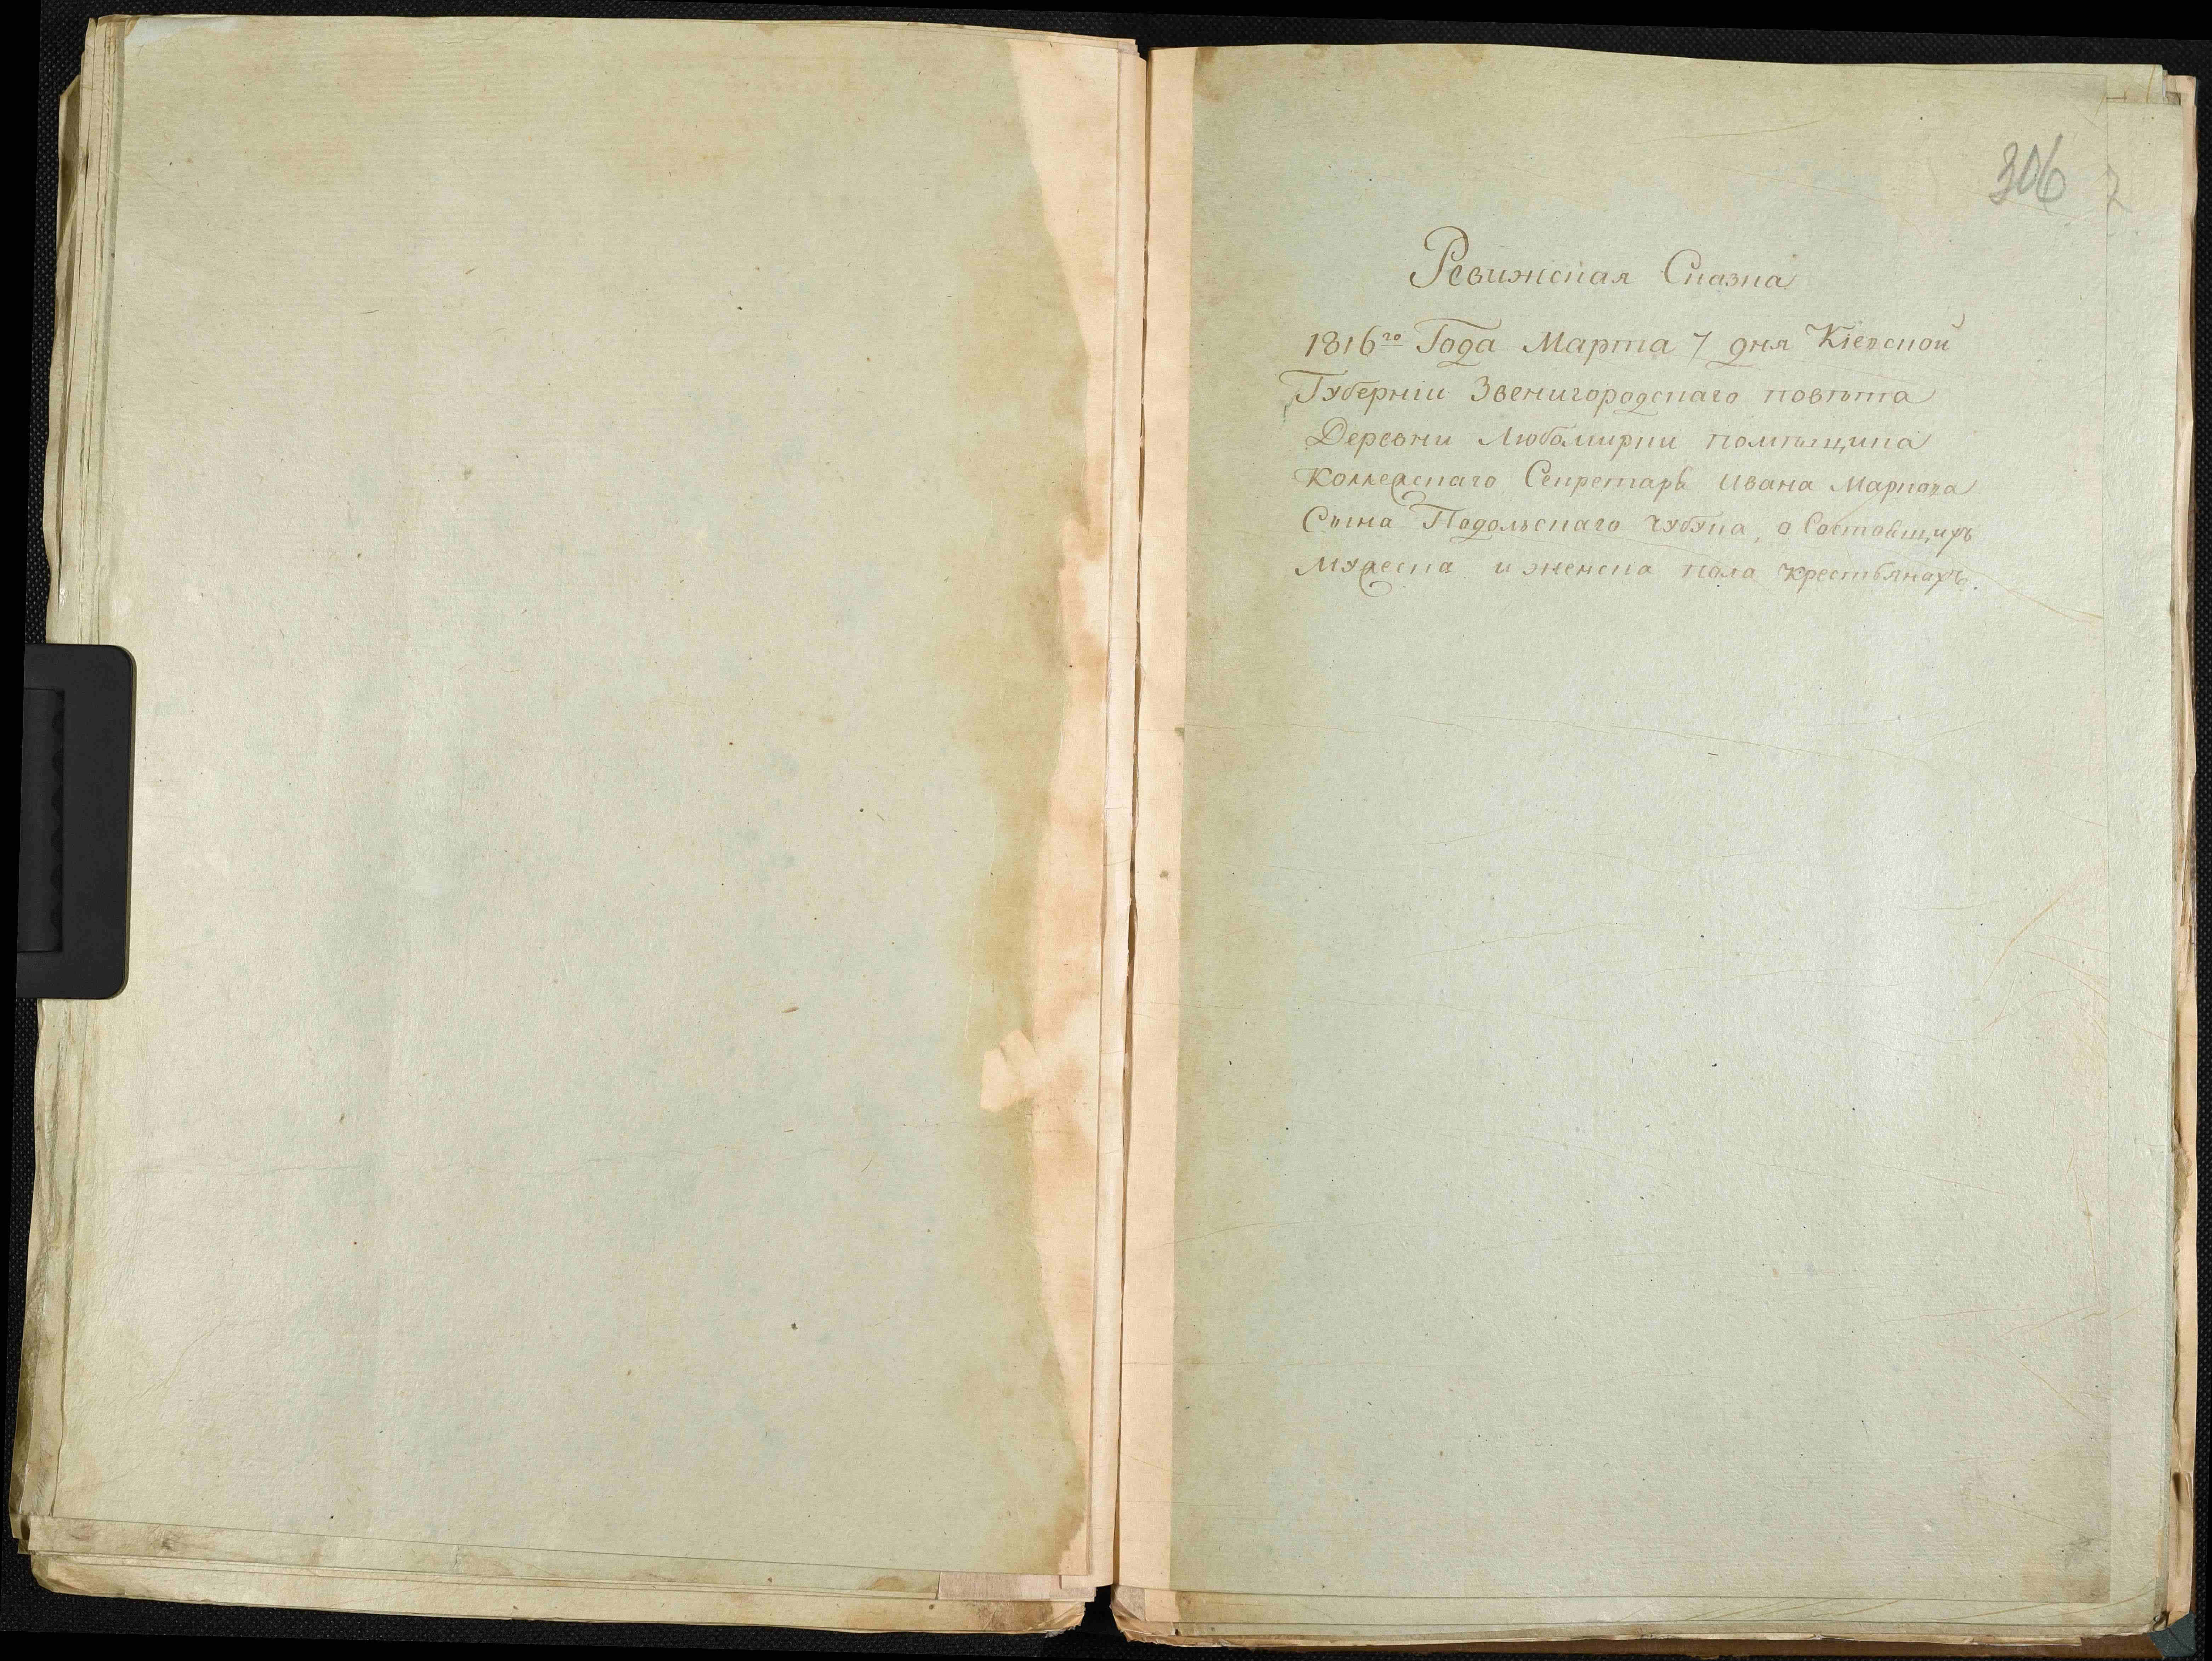 306
Ревижская Сказка
1816го Года Марта 7 дня Кіевской
Губерніи Звенигородскаго повѣта
Деревни Любомирки помѣщика
Коллежскаго Секретаря Ивана Маркова
Сына Подольскаго чубука, о Состоящихъ
мужеска и женска пола крестьянахъ.